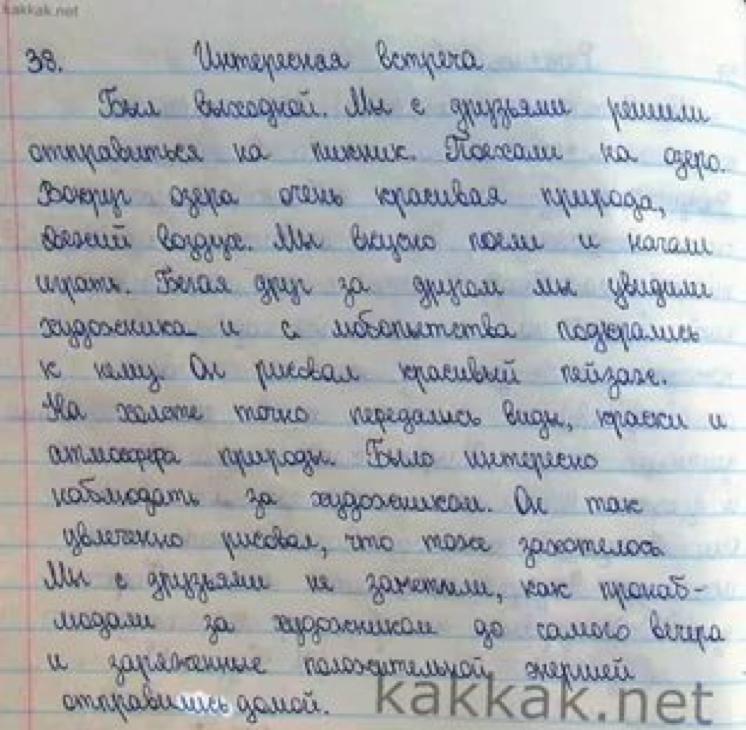 kakkak.net
38. Интересная встреча
Был выходной. Мы с друзьями решили
отправиться на пикник. Поехали на озеро.
Вокруг озера очень красивая природа,
свежий воздух. Мы вкусно поели и начали
играть. Бегая друг за другом мы увидили
художника и с любопытства подкрались
к нему. Он рисовал красивый пейзаж.
На холсте точно передались виды, краски и
атмосфера природы. Было интересно
наблюдать за художником. Он так
увлеченно рисовал, что тоже захотелось
Мы с друзьями не заметили, как пронаб-
людали за художником до самого вечера
и заряженные положительной энергией
отправились домой.
kakkak.net